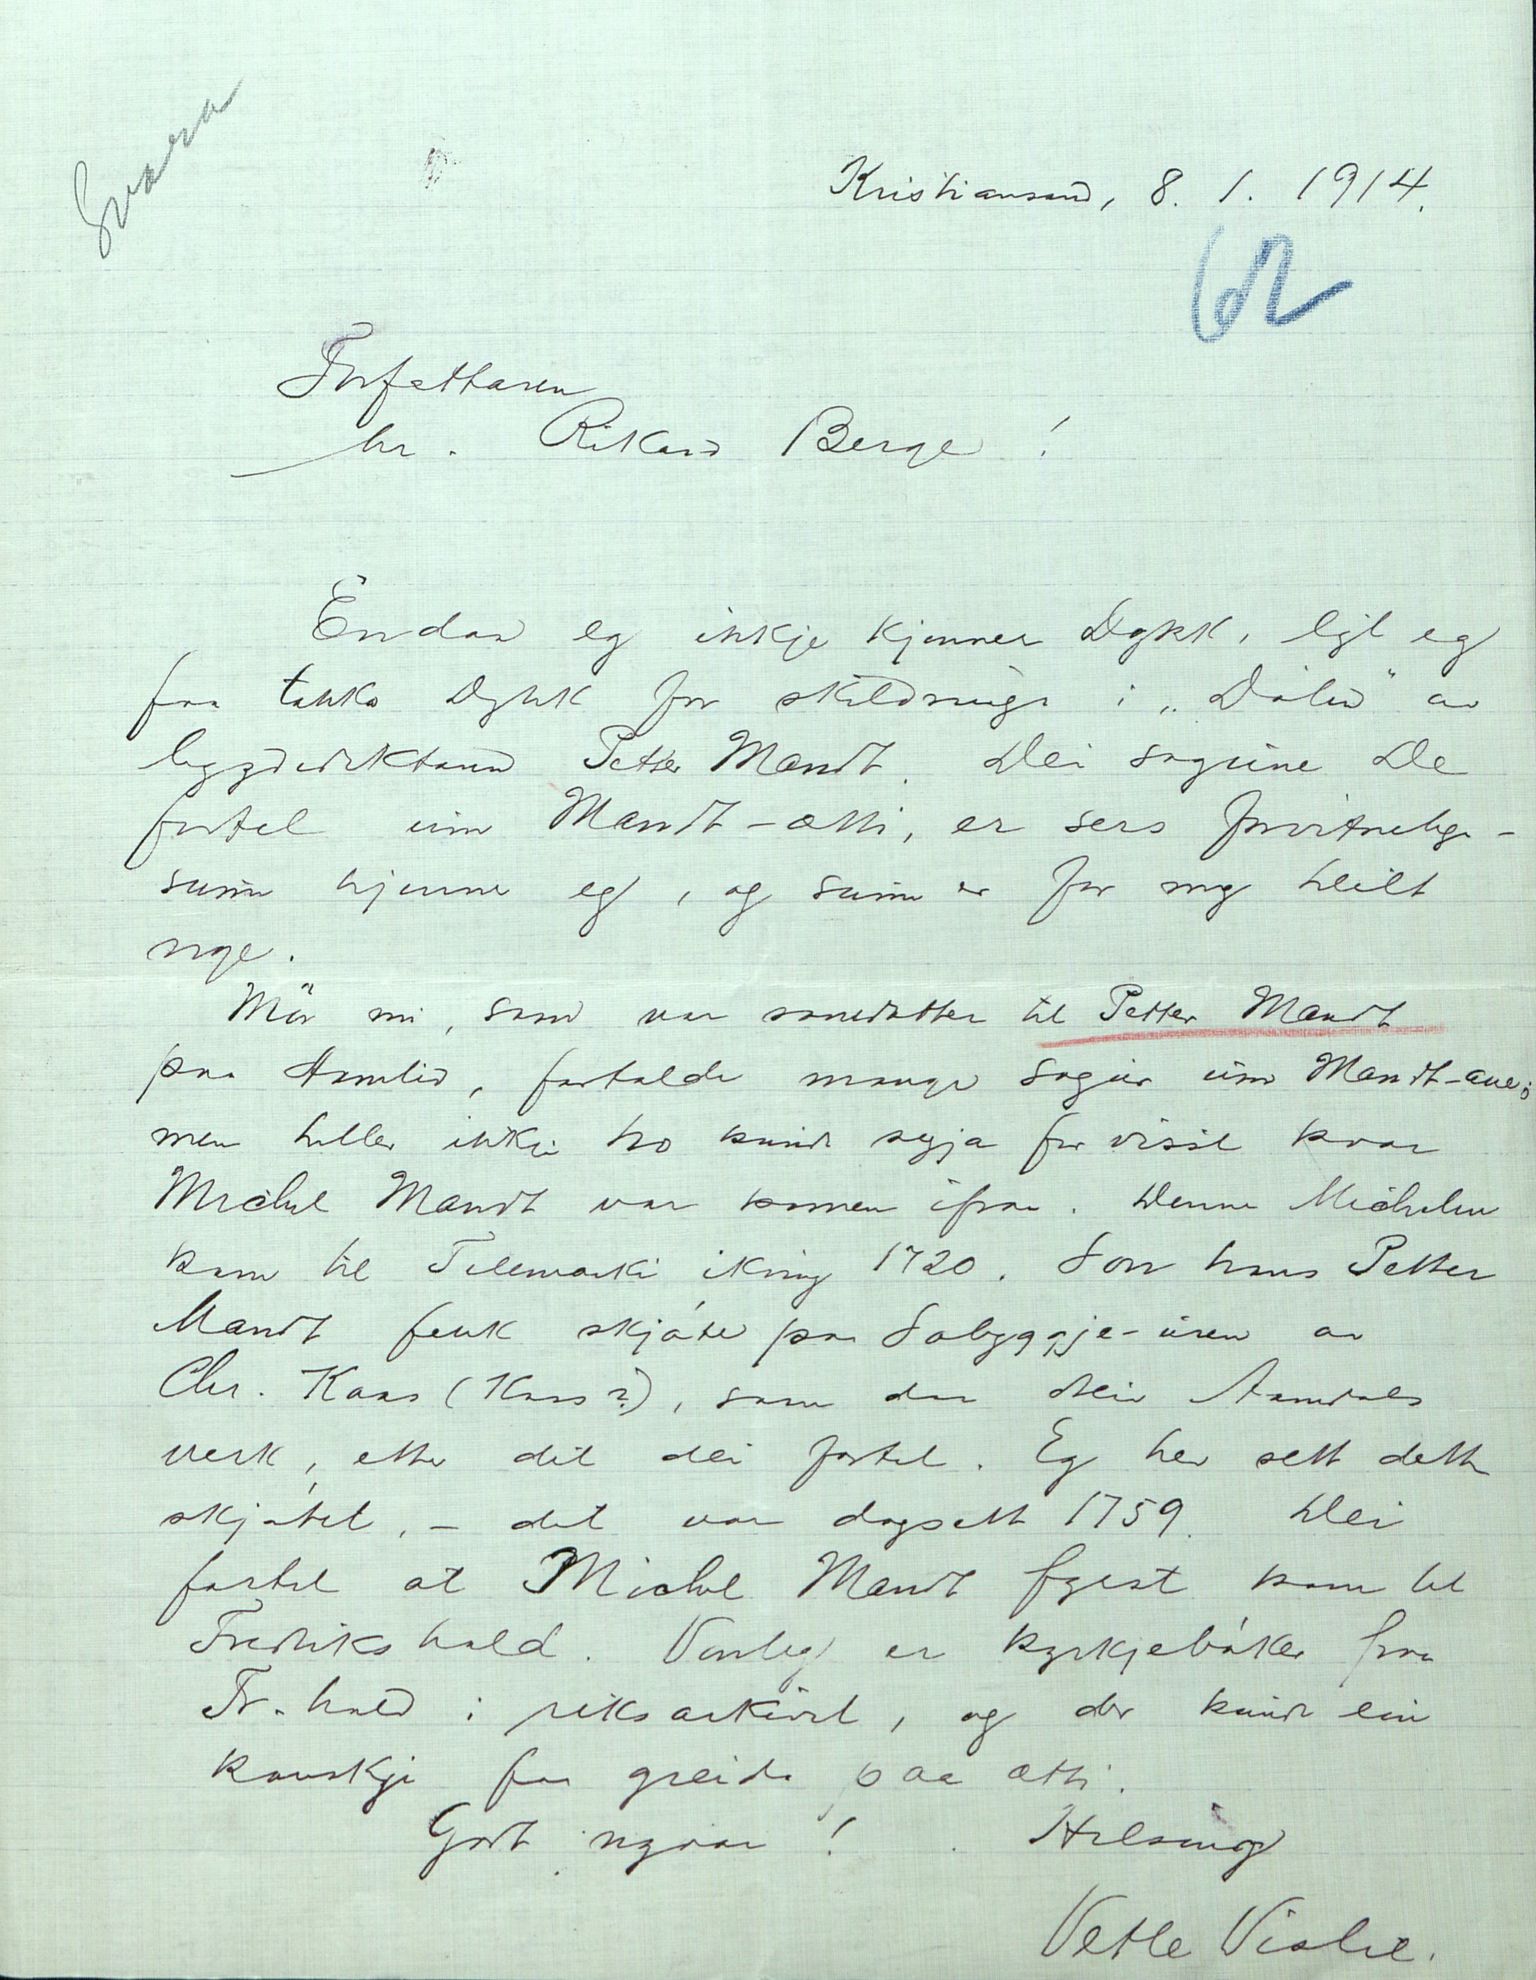 Svara
Kristiansand, 8. 1. 1914.
Forfattaren
hr. Rikard Berge!
Endaa eg inkje kjenner Dykk, lyt eg
faa takka Dykk for skildringi i „Dølen" av
bygdediktaren Petter Mandt. Dei sogune De
fortel um Mandt-ætti, er sers forvitnelege -
sume kjenner eg, og sume er for meg heilt
nye.
Mor mi, som var sonedotter til Petter Mandt
paa Aamlid, fortalde mange sogur um Mandt-ane;
men heller inkje ho kunde segja for visst kvar
Michel Mandt var komen ifraa. Denne Michelen
kom til Telemarki ikring 1720. Son hans Petter
Mandt fekk skjøte paa Sobyggje-uren av
Chr. Kaas (Kass?), som daa åtte Aamdals
verk, etter det dei fortel. Eg hev sett dette
skjøtet, - det var dagsett 1759. Dei
fortel at Michel Mandt fyrst kom til
Fredrikshald. Venteleg er kyrkjebøker fraa
Fr.hald i riksarkivet, og der kunde ein
kanskje faa greida paa ætti.
Godt nyaar! Helsing
Vetle Vislie.